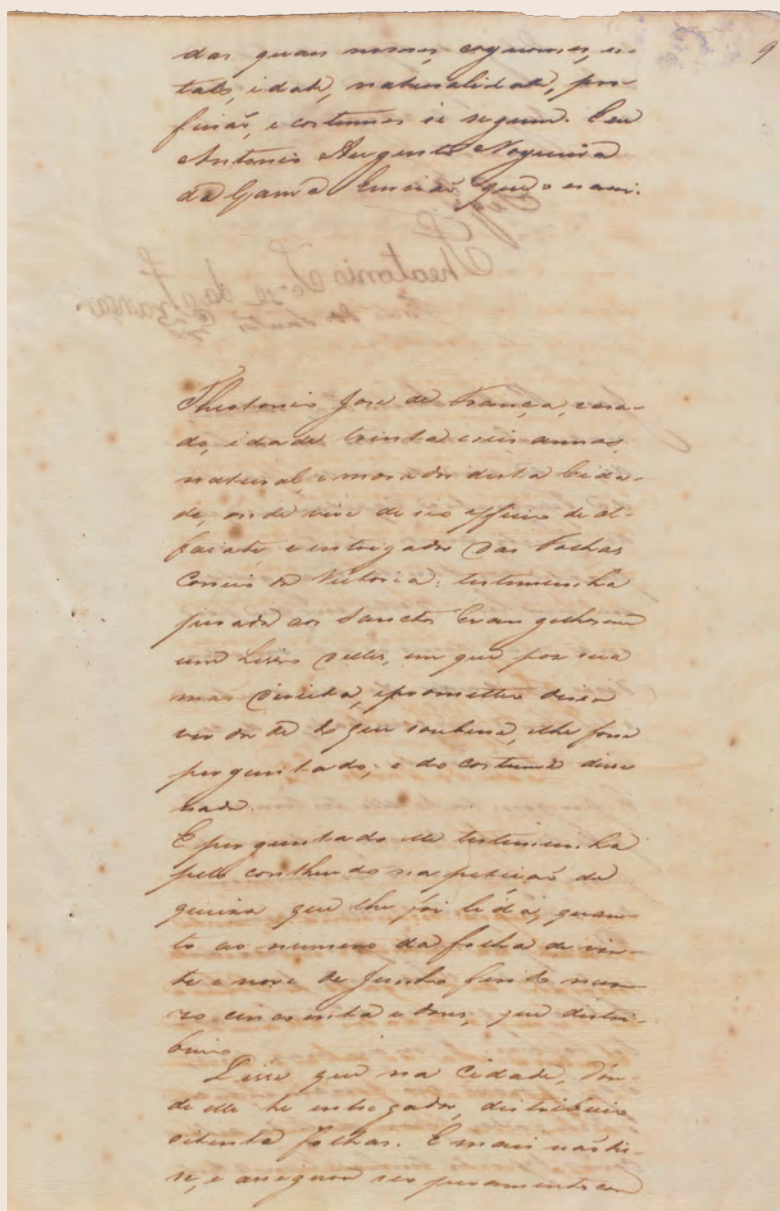 9
das quaes nomes, cognomes, es-
tado, idade, naturalidade, pro-
fissaõ, e costumes se seguem. Eeu
Antonio Augusto Nogueira
da Gama Escrivaõ que o escrevi.
Theotonio José de França
Theotonio José de França, casa-
do, idade trinta e seis annos,
natural, e morador desta Cida-
de, onde vive de seo officio de al-
faiate, e entregador das Folhas
Correio da Victoria: testemunha
jurada aos Sanctos Evangelhos em
um Livro delles, em que poz sua
maõ direita, e prometteo diser a
verdade do que soubesse, e lhe fosse
perguntado; e do costume disse
nada.
E perguntado elle testemunha
pelo contheudo na petiçaõ de
queixa que lhe foi lida, quan-
to ao numero da folha de vin-
te e nove de Junho findo nume-
ro cincoenta e dous, que distri-
buio
Disse que na Cidade, don-
de elle he entregador, distribuio
oitenta folhas. E mais naõ dis-
se, e assignou seo juramento com